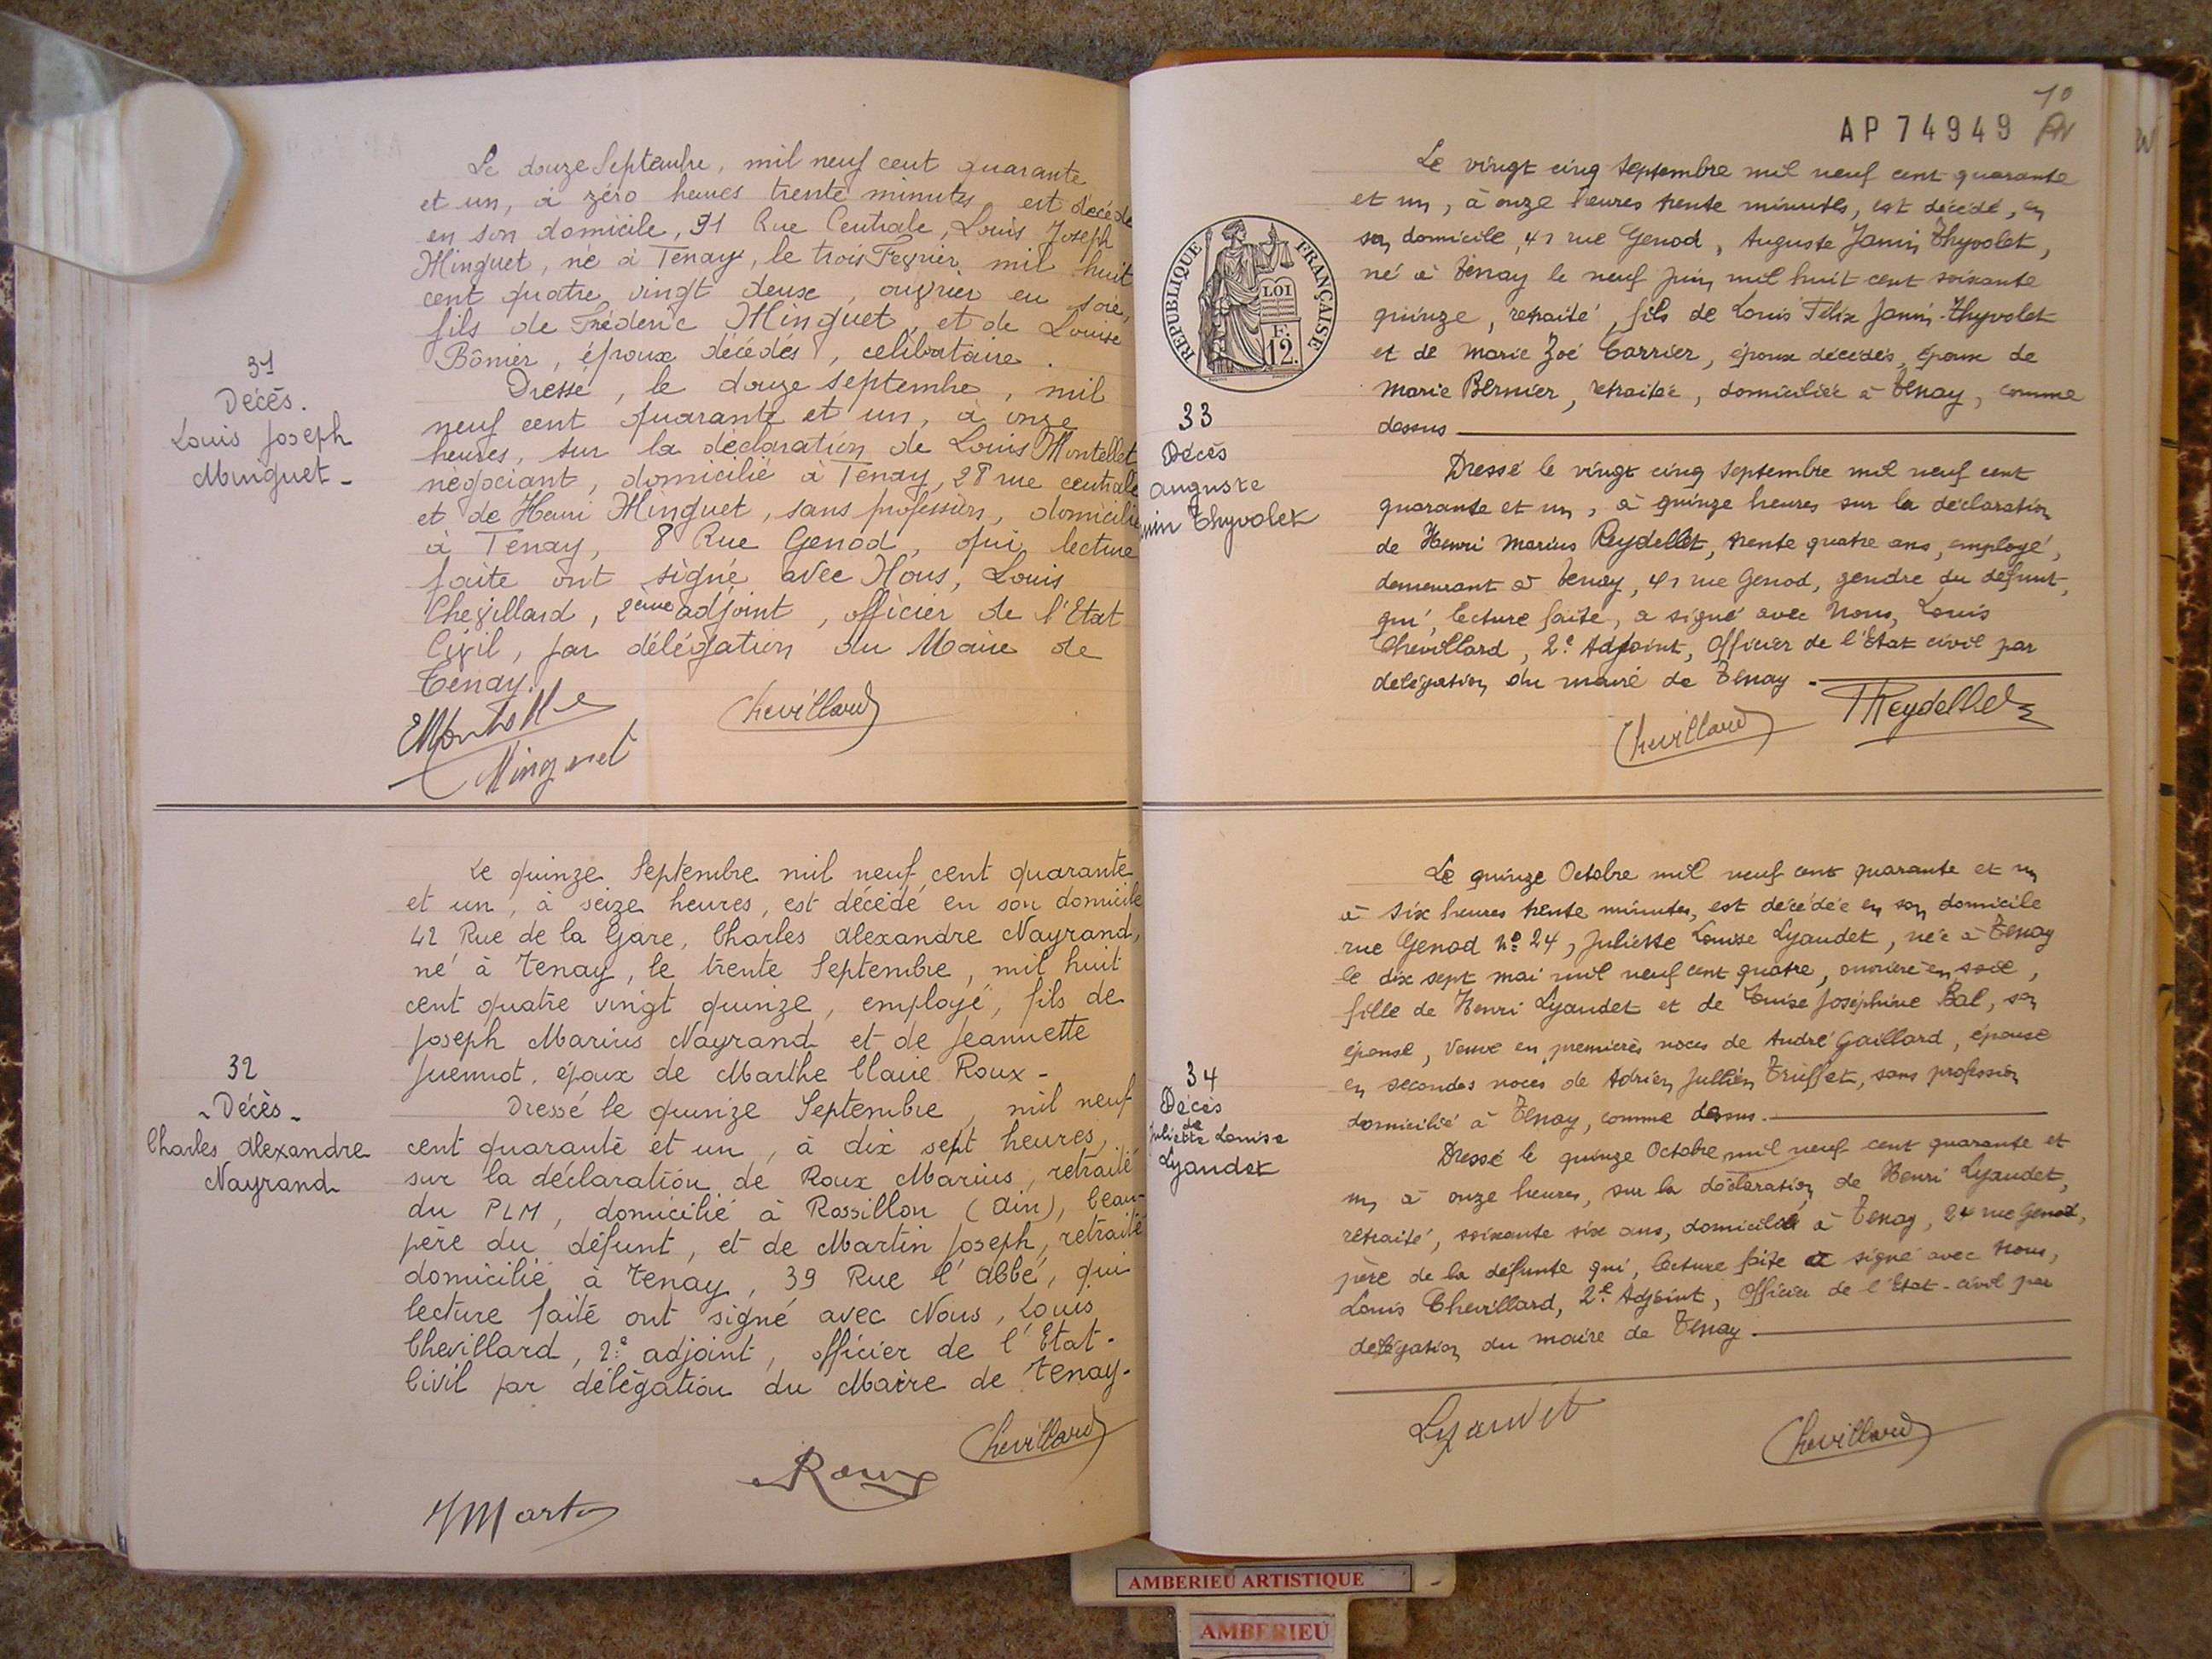 31
Décés.
Louis Joseph
Minguet -
Le douze Septembre, mil neuf cent quarante
et un, à zéro heures trente minutes, est décédé
en son domicile, 91 Rue Centrale, Louis Joseph
Minguet, né à Tenay, le trois Fevrier mil huit
cent quatre vingt deux, ouvrier en soie,
fils de Fréderic Minguet, et de Louise
Bônier, époux décédés, celibataire.
Dressé, le douze septembre, mil
neuf cent quarante et un, à onze
heures, sur la déclaration de Louis Montellet
négociant, domicilié à Tenay, 28 rue centrale
et de Henri Minguet, sans profession, domicilié
à Tenay, 8 Rue Genod, qui lecture
faite ont signé avec Nous, Louis
Chevillard, 2ème adjoint, officier de l'Etat
Civil, par délégation du Maire de
Tenay.
Chevillard
Minguet
32
- Décès -
Charles Alexandre
Nayrand
Le quinze Septembre mil neuf cent quarante
et un, à seize heures, est décédé en son domicile
42 Rue de la Gare, Charles Alexandre Nayrand,
né à Tenay, le trente Septembre, mil huit
cent quatre vingt quinze, employé, fils de
Joseph Marius Nayrand et de Jeannette
Juennot, époux de Marthe Claire Roux -
Dressé le quinze Septembre, mil neuf
cent quarante et un, à dix sept heures,
sur la déclaration de Roux Marius, retraité
du PLM, domicilié à Rossillon (Ain), beau-
père du défunt, et de Martin Joseph, retraité
domicilié à Tenay, 39 Rue l'Abbé, qui
lecture faite ont signé avec Nous, Louis
Chevillard, 2e adjoint, officier de l'Etat-
Civil par délégation du Maire de Tenay.
Chevillard
Roux
J Martin
10
AP 74949
REPUBLIQUE FRANÇAISE
LOI
F.
12.
33
Décès
Auguste
Thyvolet
Le vingt cinq septembre mil neuf cent quarante
et un, à onze heures trente minutes, est décédé, en
son domicile, 41 rue Genod, Auguste Janin Thyvolet,
né à Tenay le neuf juin mil huit cent soixante
quinze, retraité, fils de Louis Félix Janin-Thyvolet
et de Marie Zoé Carrier, époux décédés, époux de
Marie Bernier, retraitée, domiciliée à Tenay, comme
dessus
Dressé le vingt cinq septembre mil neuf cent
quarante et un, à quinze heures sur la déclaration
de Henri Marius Reydellet, trente quatre ans, employé,
demeurant à Tenay, 41 rue Genod, gendre du défunt,
qui, lecture faite, a signé avec Nous, Louis
Chevillard, 2e Adjoint, Officier de l'Etat civil par
délégation du maire de Tenay -
Chevillard
Reydellet
34
Décès
de
Juliette Louise
Lyaudet
Le quinze Octobre mil neuf cent quarante et un
à six heures trente minutes, est décédée en son domicile
rue Genod No 24, Juliette Louise Lyaudet, née à Tenay
le dix sept mai mil neuf cent quatre, ouvrière en soie,
fille de Henri Lyaudet et de Louise Joséphine Bal, son
épouse, veuve en premières noces de André Gaillard, épouse
en secondes noces de Adrien Jullien Truffet, sans profession
domicilié à Tenay, comme dessus.
Dressé le quinze Octobre mil neuf cent quarante et
un à onze heures, sur la déclaration de Henri Lyaudet,
retraité, soixante six ans, domicilié à Tenay, 24 rue Genod,
père de la défunte qui, lecture faite a signé avec Nous,
Louis Chevillard, 2e Adjoint, Officier de l'Etat-civil par
délégation du maire de Tenay
Lyaudet
Chevillard
AMBERIEU ARTISTIQUE
AMBERIEU